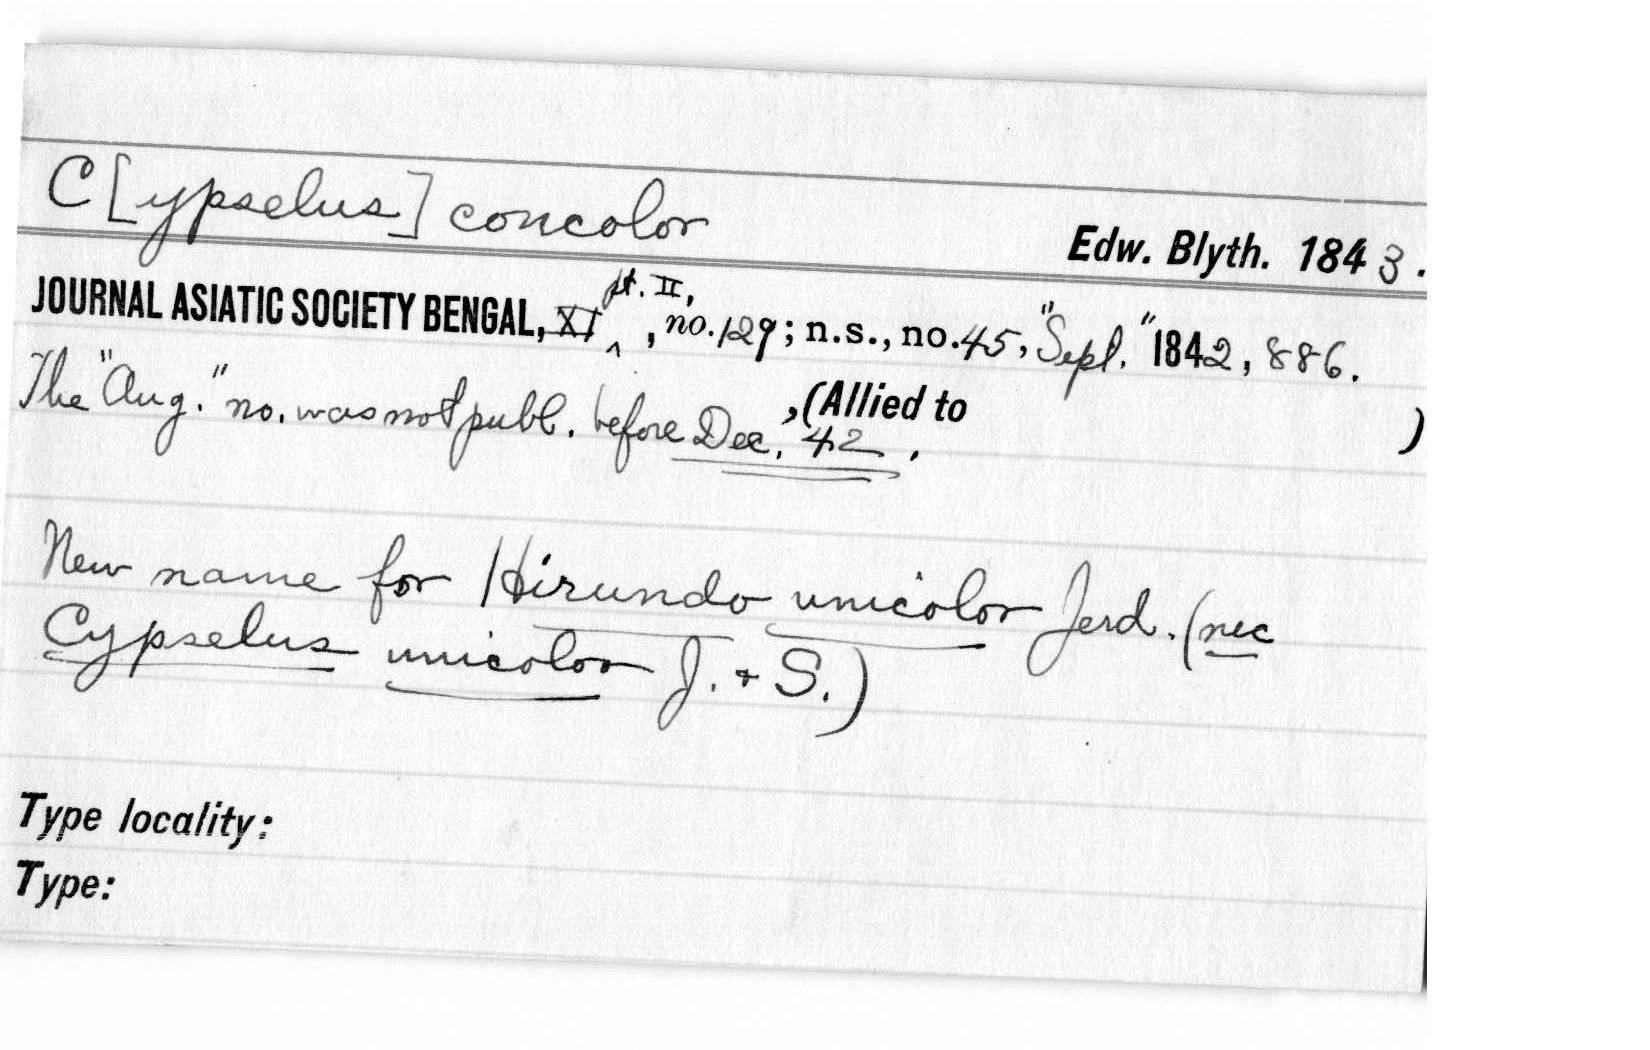 C[ypselus] concolor
Edw. Blyth. 1843.
JOURNAL ASIATIC SOCIETY BENGAL, XI pt. II, , no. 129; n.s., no. 45, "Sept." 1842, 886.
The "Aug." no. was not publ. before Dec. 42. , (Allied to )
New name for Hirundo unicolor Jerd. (nec
Cypselus unicolor J. + S.)
Type locality:
Type: